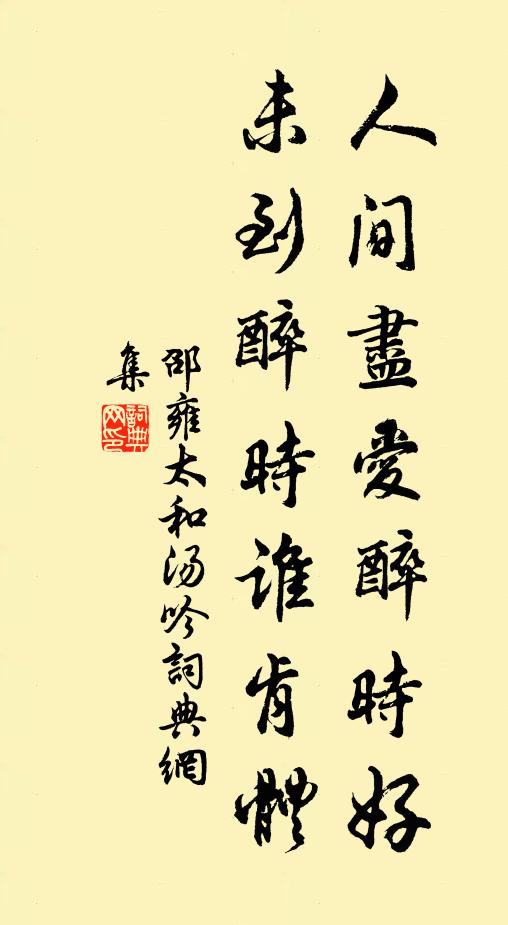 人间盡愛醉時好
未到醉時誰肯體
邵雍太和汤吟詞典網
集
詞典網印